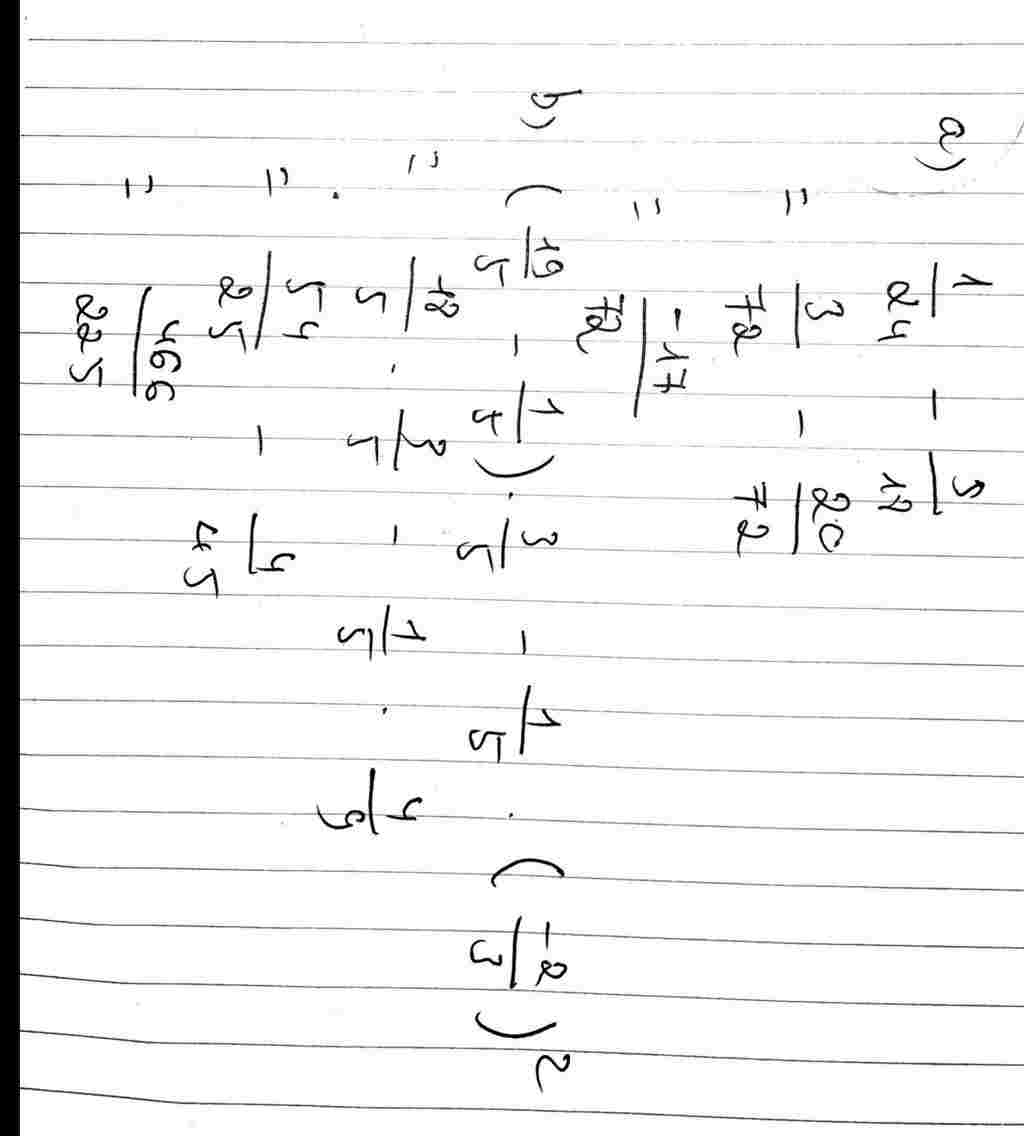 a) 1/24 - 5/18
= 3/72 - 20/72
= -17/72
b) (19/5 - 1/5) · 3/5 - 1/5 · (-2/3)^2
= 18/5 · 3/5 - 1/5 · 4/9
= 54/25 - 4/45
= 466/225